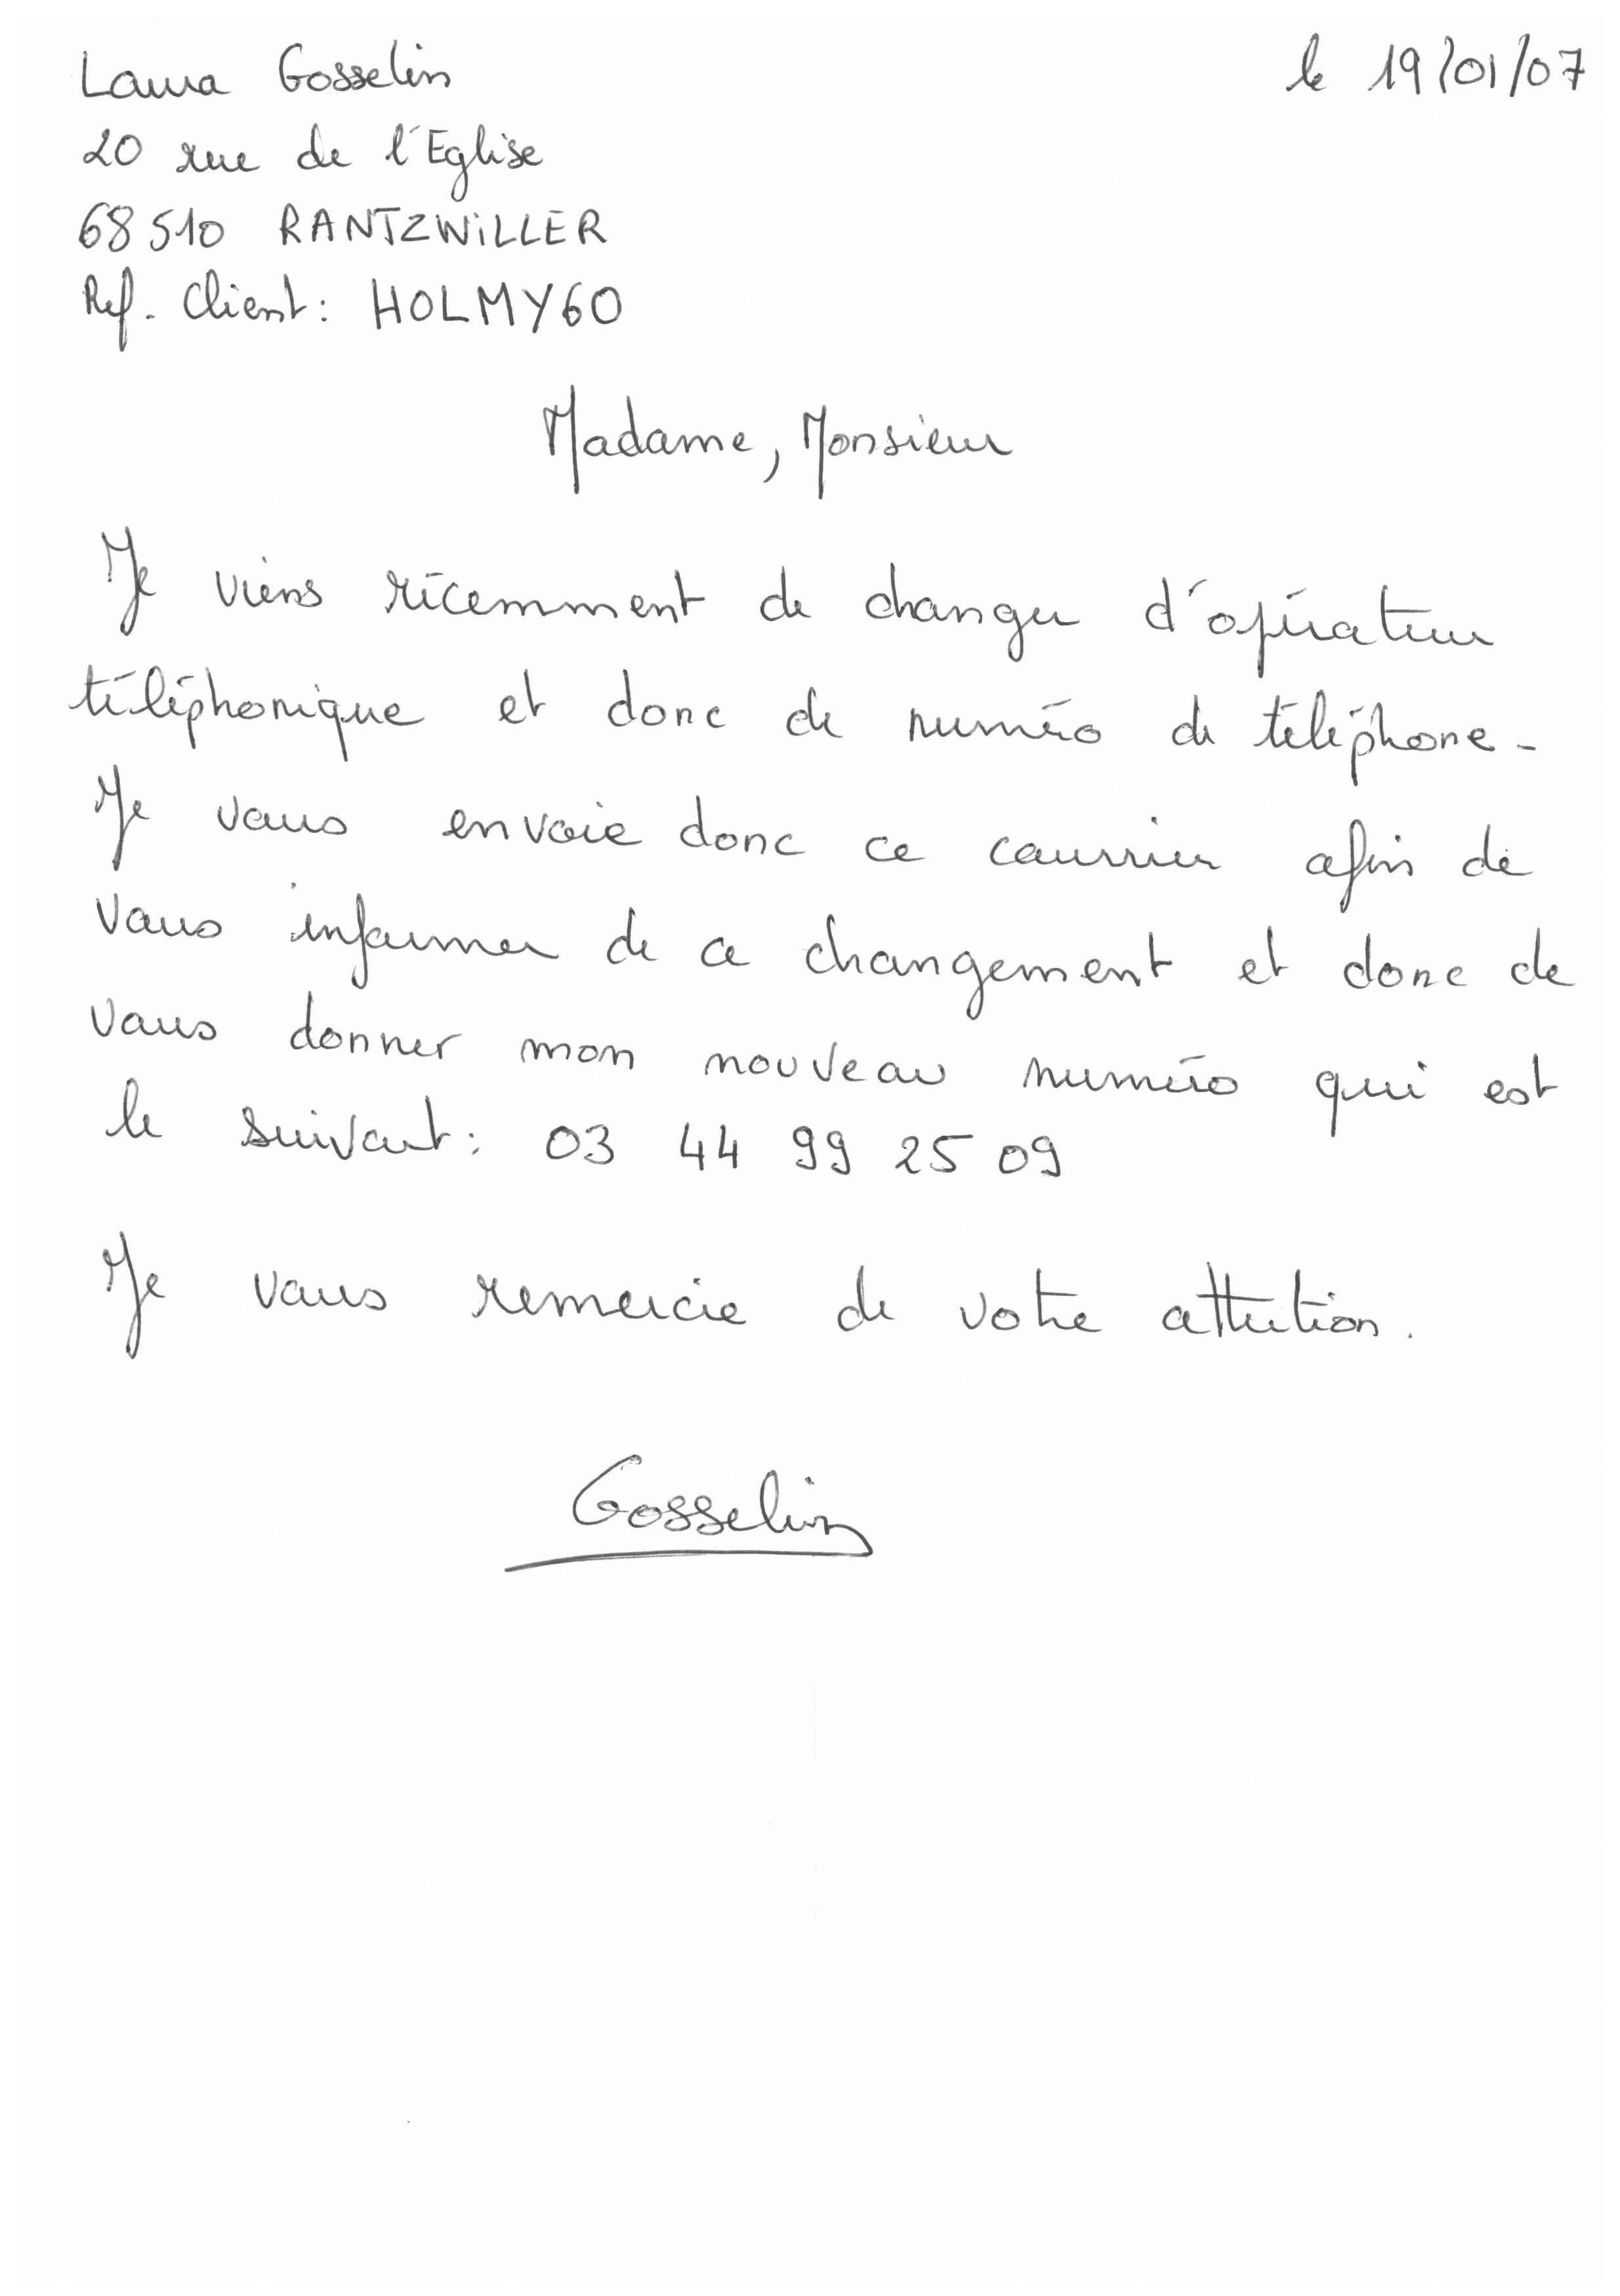 Laura Gosselin
le 19/01/07
20 rue de l'Eglise
68510 RANTZWiLLER
Ref. Client: HOLMY60
Madame, Monsieur
Je viens récemment de changer d'opérateur
téléphonique et donc de numéro de téléphone.
Je vous envoie donc ce courrier afin de
vous informer de ce changement et donc de
vous donner mon nouveau numéro qui est
le suivant: 03 44 99 25 09
Je vous remercie de votre attention.
Gosselin